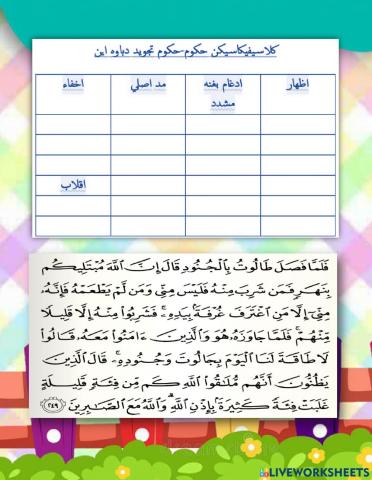 كلاسيفيكاسيكن حكوم-حكوم تجويد دباوه اين
اظهار ادغام بغنه مد اصلي اخفاء
مشدد
اقلاب
فَلَمَّا فَصَلَ طَالُوتُ بِٱلْجُنُودِ قَالَ إِنَّ ٱللَّهَ مُبْتَلِيكُم
بِنَهَرٍ فَمَن شَرِبَ مِنْهُ فَلَيْسَ مِنِّى وَمَن لَّمْ يَطْعَمْهُ فَإِنَّهُۥ
مِنِّىٓ إِلَّا مَنِ ٱغْتَرَفَ غُرْفَةًۢ بِيَدِهِۦ ۚ فَشَرِبُوا۟ مِنْهُ إِلَّا قَلِيلًا
مِّنْهُمْ ۚ فَلَمَّا جَاوَزَهُۥ هُوَ وَٱلَّذِينَ ءَامَنُوا۟ مَعَهُۥ قَالُوا۟
لَا طَاقَةَ لَنَا ٱلْيَوْمَ بِجَالُوتَ وَجُنُودِهِۦ ۚ قَالَ ٱلَّذِينَ
يَظُنُّونَ أَنَّهُم مُّلَـٰقُوا۟ ٱللَّهِ كَم مِّن فِئَةٍ قَلِيلَةٍ
غَلَبَتْ فِئَةً كَثِيرَةًۢ بِإِذْنِ ٱللَّهِ ۗ وَٱللَّهُ مَعَ ٱلصَّـٰبِرِينَ ٢٤٩
LIVEWORKSHEETS